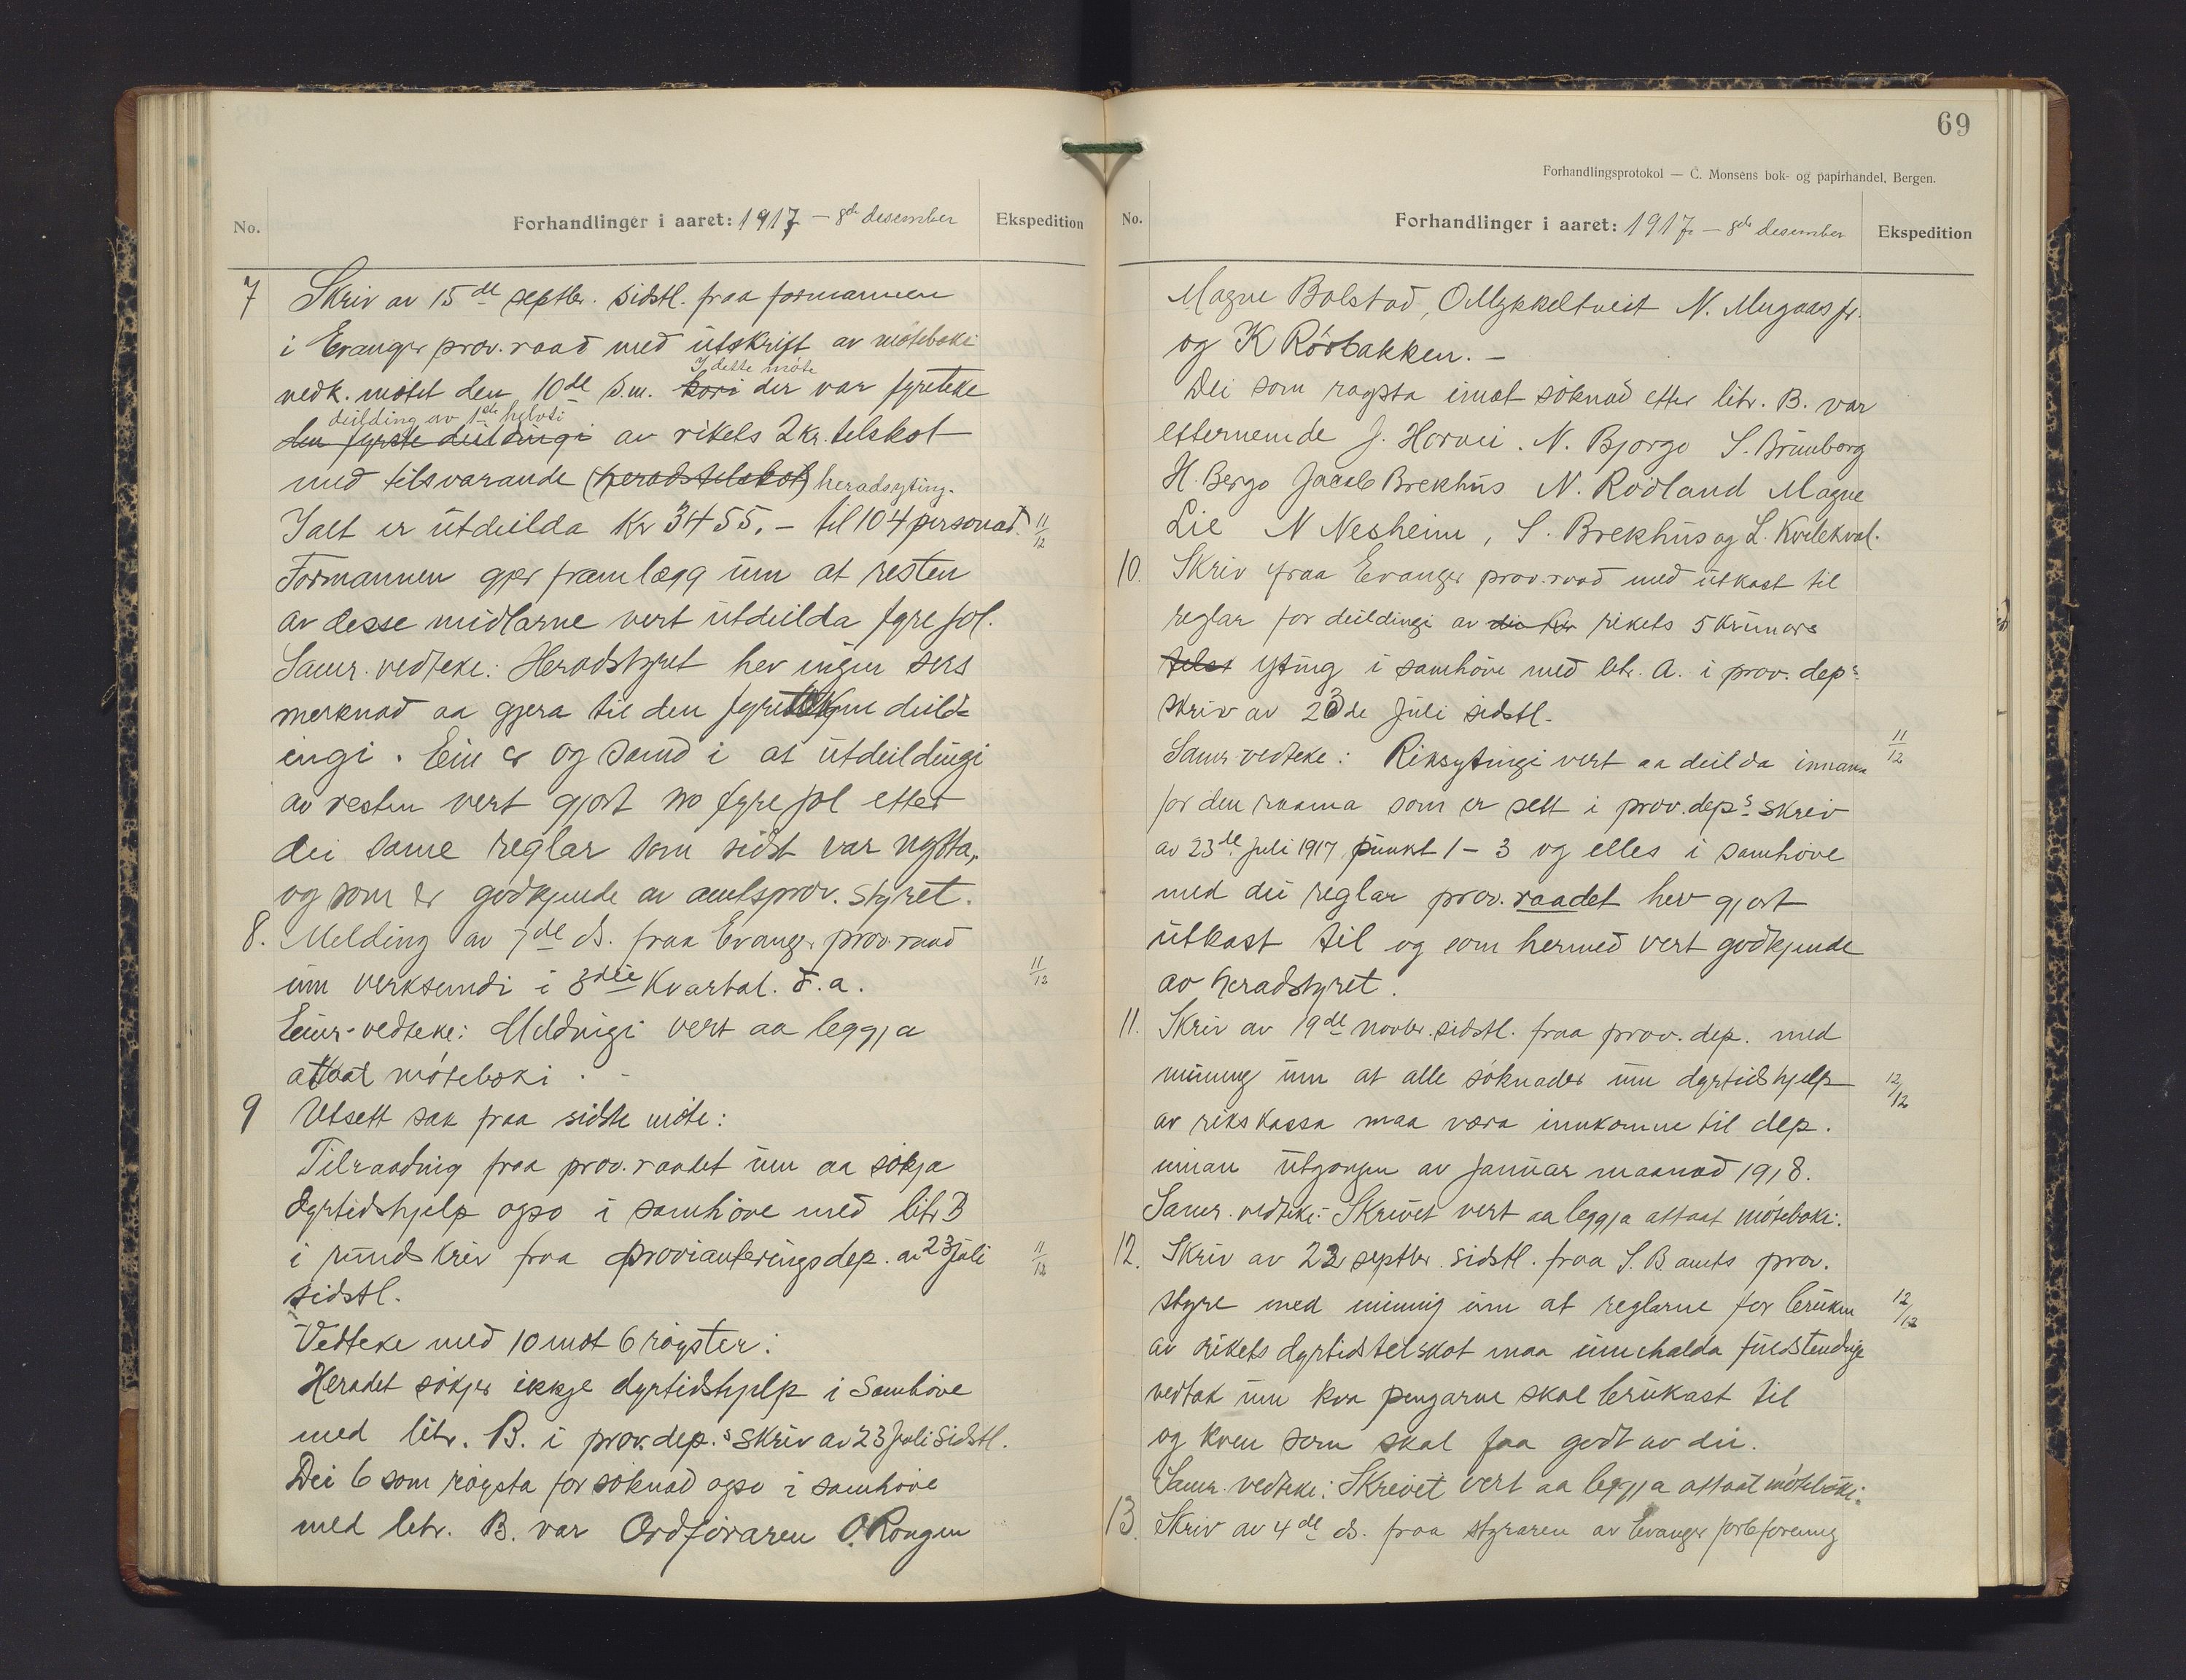 No. Forhandlinger i aaret: 1917 – 8de desember Ekspedition
7 Skriv av 15de septbr. sidstl. fraa formannen
i Evanger prov. raad med utskrift av møteboki
vedk. møtet den 10de s.m. kori der var fyreteke
I dette møte
den fyrste deildingi av rikets 2 kr. telskot
deilding av 1ste helvti
med tilsvarande (heradstelskot) heradsyting.
Ialt er utdeilda Kr 3455.– til 104 personar. 11/12
Formannen gjer framlegg um at resten
av desse midlarne vert utdeilda fyre jol.
Samr. vedteke: Heradstyret hev ingen sers
merknad aa gjera til den fyretekne deild=
ingi. Ein er og samd i at utdeildingi
av resten vert gjort no fyre jol etter
dei same reglar som sidst var nytta,
og som er godkjende av amtsprov. styret.
8. Melding av 7de ds. fraa Evanger prov. raad
um verksemdi i 3die Kvartal. d.a. 11/12
Einr. vedteke: Meldingi vert aa leggja
attaat møteboki. –
9 Utsett sak fraa sidste møte:
Tilraading fraa prov. raadet um aa søkja
dyrtidshjelp ogso i samhøve med litr B
i rundskriv fraa provianteringsdep. av 23 juli 11/12
sidstl.
Vedteke med 10 mot 6 røyster:
Heradet søkjer ikkje dyrtidshjelp i samhøve
med litr. B. i prov. dep.s skriv av 23 juli sidstl.
Dei 6 som røysta for søknad ogso i samhøve
med litr. B. var Ordføraren O. Rongen
69
Forhandlingsprotokol — C. Monsens bok- og papirhandel, Bergen.
No. Forhandlinger i aaret: 1917. – 8de desember Ekspedition
Magne Bolstad, O Mykkeltveit N. Mugaas jr.
og K Rösbakken. –
Dei som røysta imot søknad etter litr. B. var
etternemde J. Horvei. N. Bjorgo S. Brunborg
H. Bergo Jacob Brekhus N. Rødland Magne
Lie N Nesheim, S. Brekhus og L. Kvilekval.
10. Skriv fraa Evanger prov. raad med utkast til
reglar for deildingi av rikets 5 Kruners
telst yting i samhøve med litr. A. i prov. deps.
skriv av 23de juli sidstl.
Samr. vedteke: Riksytingi vert aa deilda innanu 11/12
for den raama som er sett i prov. deps. skriv
av 23de juli 1917 punkt 1–3 og elles i samhøve
med dei reglar prov. raadet hev gjort
utkast til og som hermed vert godkjende
av heradstyret.
11. Skriv av 19de novbr. sidstl. fraa prov. dep. med
minning um at alle søknader um dyrtidshjelp 12/12
av rikskassa maa vera innkomne til dep.
innan utgangen av januar maanad 1918.
Samr. vedteke: Skrivet vert aa leggja attaat møteboki.
12. Skriv av 22 septbr. sidstl. fraa S. B amts prov.
styre med minning um at reglarne for bruken 12/12
av rikets dyrtidstelskot maa innehalda fuldstendige
vedtak um kva pengarne skal brukast til
og kven som skal faa godt av dei.
Samr. vedteke: Skrivet vert aa leggja attaat møteboki.
13. Skriv av 4de ds. fraa styraren av Evanger forbforening